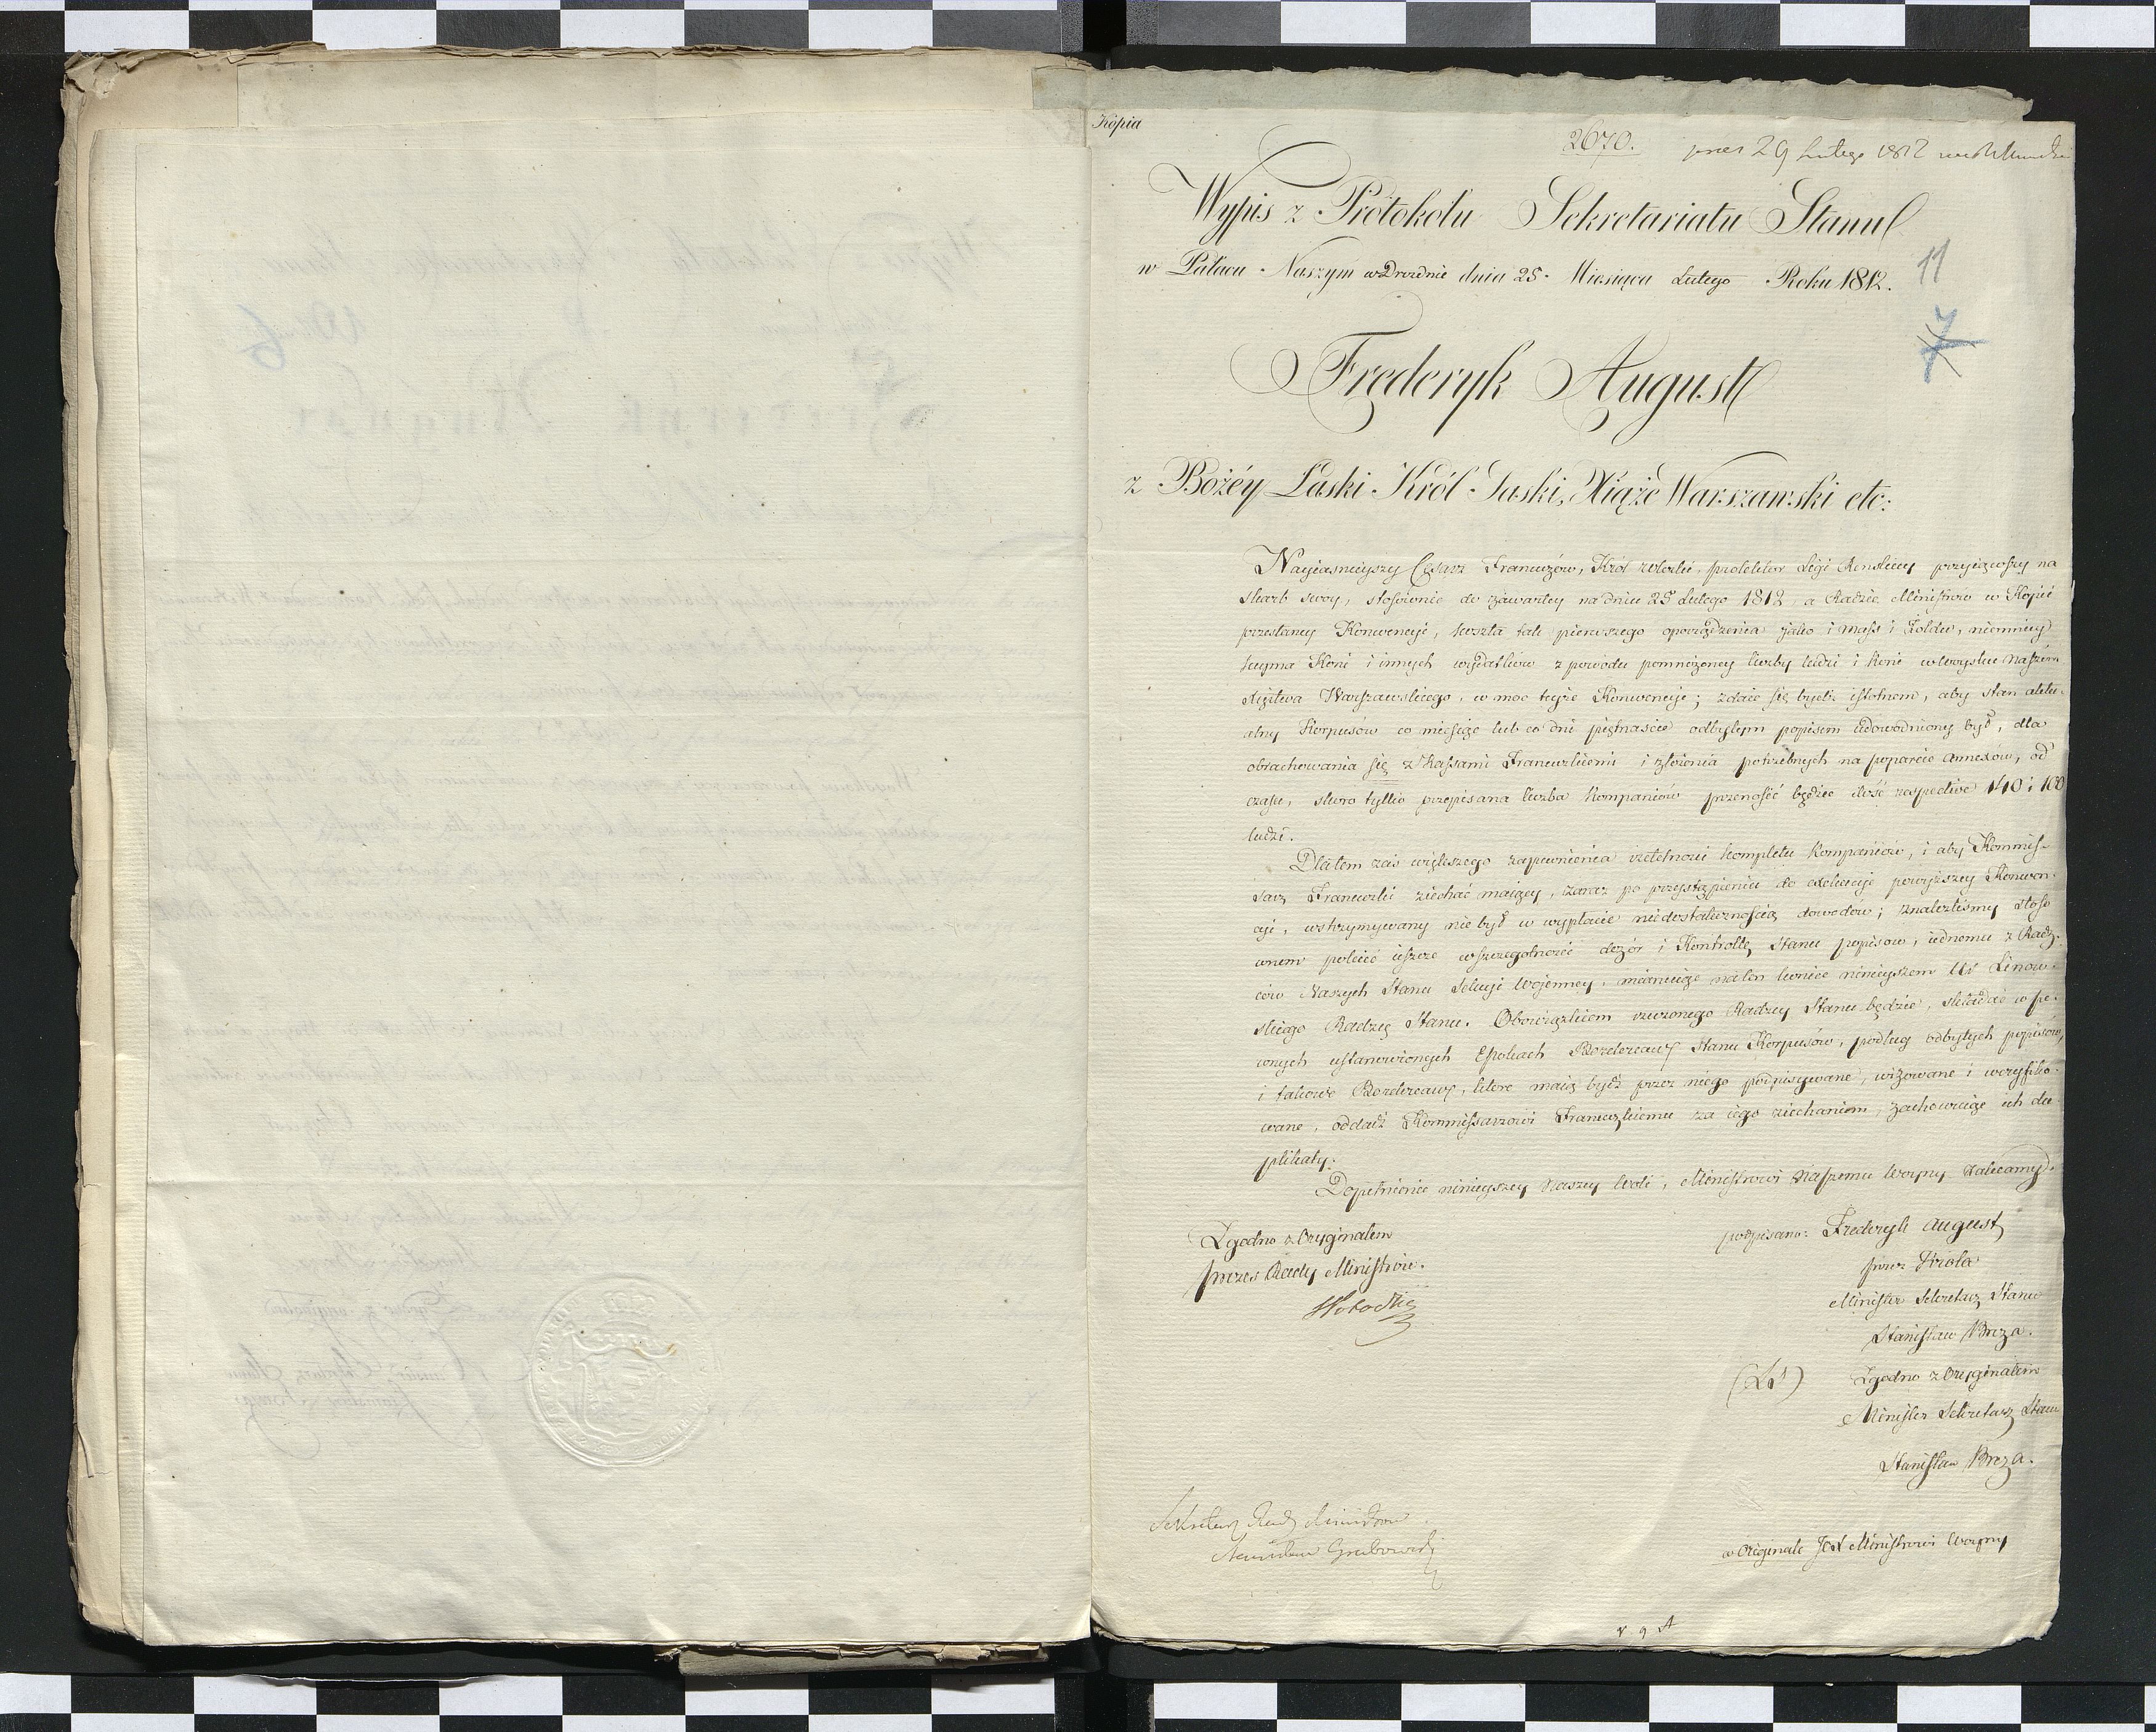 Kopia
2670.
29 Lutego 1812
Wypis z Protokołu Sekretariatu Stanu
w Pałacu Naszym w Dreznie dnia 25. Miesiąca Lutego Roku 1812.
11
7
Frederyk August
z Bożéy Łaski Król Saski, Xiąże Warszawski etc:
Nayiasnieyszy Cesarz Francuzów, Król włoski, protektor Ligi Renskiey przyiąwszy na
skarb swoy, stosownie do zawartey na dniu 25 Lutego 1812, a Radzie Ministrów w Kopii
przesłaney Konwencyi, koszta tak pierwszego oporządzenia jako i mass i żołdu, niemniey
kupna Koni i innych wydatków z powodu pomnożoney liczby ludzi i koni w woysku naszém
Xięstwa Warszawskiego, w moc teyże Konwencyi; zdaie się bydź istotnem, aby stan aktu-
alny Korpusów co miesiąc lub co dni piętnaście odbytym popisem udowodniony był, dla
obrachowania się z Kassami Francuzkiemi i złożenia potrzebnych na poparcie annexów, od
czasu, skoro tylko przepisana liczba Kompaniów przenosić będzie ilość respective 140 i 100
ludzi.
Dla tem zaś większego zapewnienia rzetelności kompletu Kompaniów, i aby Kommis-
sarz Francuzki ziechać maiący, zaraz po przystąpieniu do exekucyi powyższey Konwen-
cyi, wstrzymywany nie był w wypłacie niedostatecznością dowodów; znaleźliśmy stoso-
wnem polecić ieszcze wszczegolności dozór i Kontrollę stanu popisow, iednemu z Radz-
ców Naszych Stanu Sekcyi Woienney, mianuiąc na ten koniec ninieyszem Ur Linow-
skiego Radzcę Stanu. Obowiązkiem rzeczonego Radzcy Stanu będzie, składać w pe-
wnych ustanowionych Epokach Bordereaux stanu Korpusów, podług odbytych popisów,
i takowe Bordereaux, które maią bydź przez niego podpisywane, wizowane i weryfiko-
wane, oddadź Kommissarzowi Francuzkiemu za iego ziechaniem, zachowuiąc ich du-
plikaty.
Dopełnienie ninieyszey Naszey Woli, Ministrowi Naszemu Woyny zalecamy.
Zgodno z Oryginałem
prezes Rady Ministrów.
podpisano: Frederyk August
przez Króla
Minister Sekretarz Stanu
Stanisław Breza.
(LS)
Zgodno z Oryginałem
Minister Sekretarz Stanu
Stanisław Breza.
Sekretarz Rady Ministrów
Stanisław Grabowski
w Oryginale Jest Ministrowi Woyny